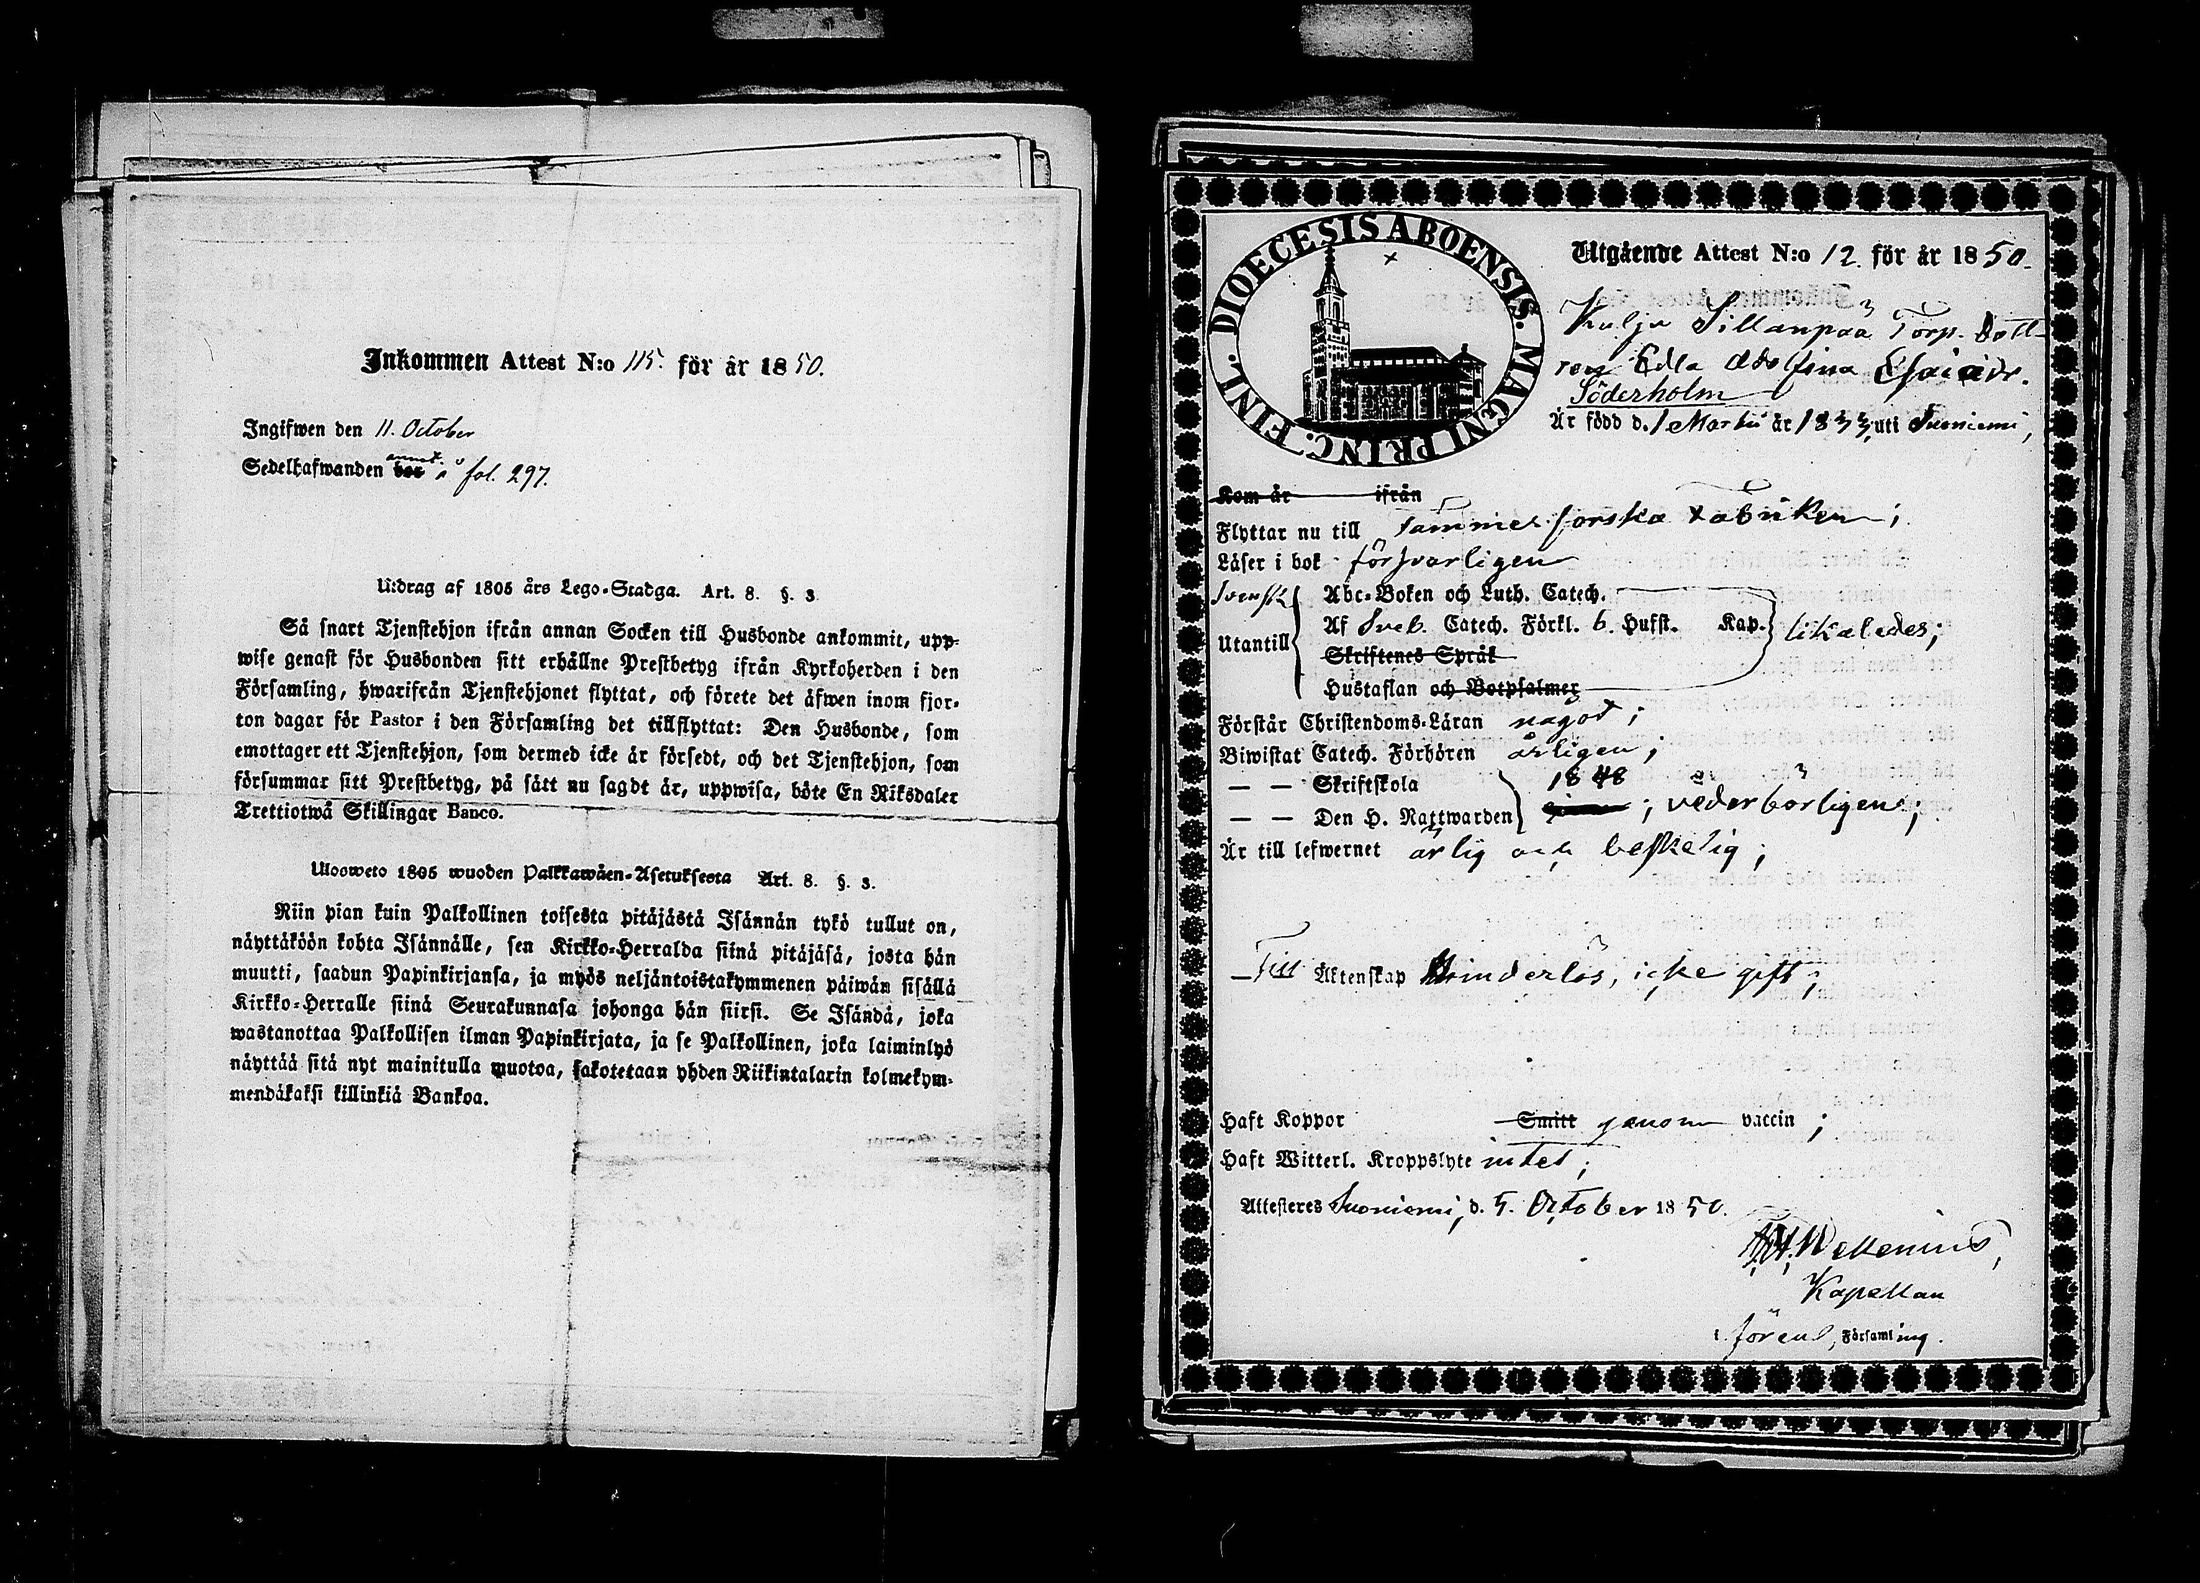 Inkommen Attest N:o 115. för år 1850.
Ingifwen den 11. October
Sedelhafwanden bor annot. å fol. 297.
Utdrag af 1805 års Lego-Stadga. Art. 8. §. 3
Så snart Tjenstehjon ifrån annan Socken till Husbonde ankommit, upp-
wise genast för Husbonden sitt erhållne Prestbetyg ifrån Kyrkoherden i den
Församling, hwarifrån Tjenstehjonet flyttat, och förete det äfwen inom fjor-
ton dagar för Pastor i den Församling det tillflyttat: Den Husbonde, som
emottager ett Tjenstehjon, som dermed icke är försedt, och det Tjenstehjon, som
försummar sitt Prestbetyg, på sätt nu sagdt är, uppwisa, böte En Riksdaler
Trettiotwå Skillingar Banco.
Uloswето 1805 wuoden Palkkawäen-Asetuksesta Art. 8. §. 3.
Niin pian kuin Palkollinen toisesta pitäjästä Isännän tykö tullut on,
näyttäköön kohta Isännälle, sen Kirkko-Herralda siinä pitäjäsä, josta hän
muutti, saadun Papinkirjansa, ja myös neljäntoistakymmenen päiwän sisällä
Kirkko-Herralle siinä Seurakunnasa johonga hän siirsi. Se Isändä, joka
wastanottaa Palkollisen ilman Papinkirjata, ja se Palkollinen, joka laiminlyö
näyttää sitä nyt mainitulla muotoa, sakotetaan yhden Riikintalarin kolmekym-
mendäkaksi killinkiä Bankoa.
DIOECESIS ABOENSIS. MAGNI PRINC. FINL.
Utgående Attest N:o 12. för år 1850.
Kulju Sillanpää Torp. Dott-
ren Edla Adolfina Esaiædr.
Söderholm
Är född d. 1 Martii år 1833, uti Suoniemi,
Kom år ifrån
Flyttar nu till Tammerforska Fabriken;
Läser i bok försvarligen
Svensk Abc-Boken och Luth. Catech.
Utantill Af Sveb. Catech. Förkl. 6. Hufst. Kap. likaledes;
Skriftenes Språk
Hustaflan och Botpsalmer
Förstår Christendoms-Läran något;
Biwistat Catech. Förhören årligen;
— — Skriftskola 1848
— — Den H. Nattwarden ; vederbörligen;
Är till lefwernet ärlig och beskedlig;
Till Äktenskap hinderlös, icke gift;
Haft Koppor Smitt genom vaccin;
Haft Witterl. Kroppslyte intet;
Attesteres Suoniemi, d. 5. October 1850.
Wellenius,
Kapellan
i förend. Församling.